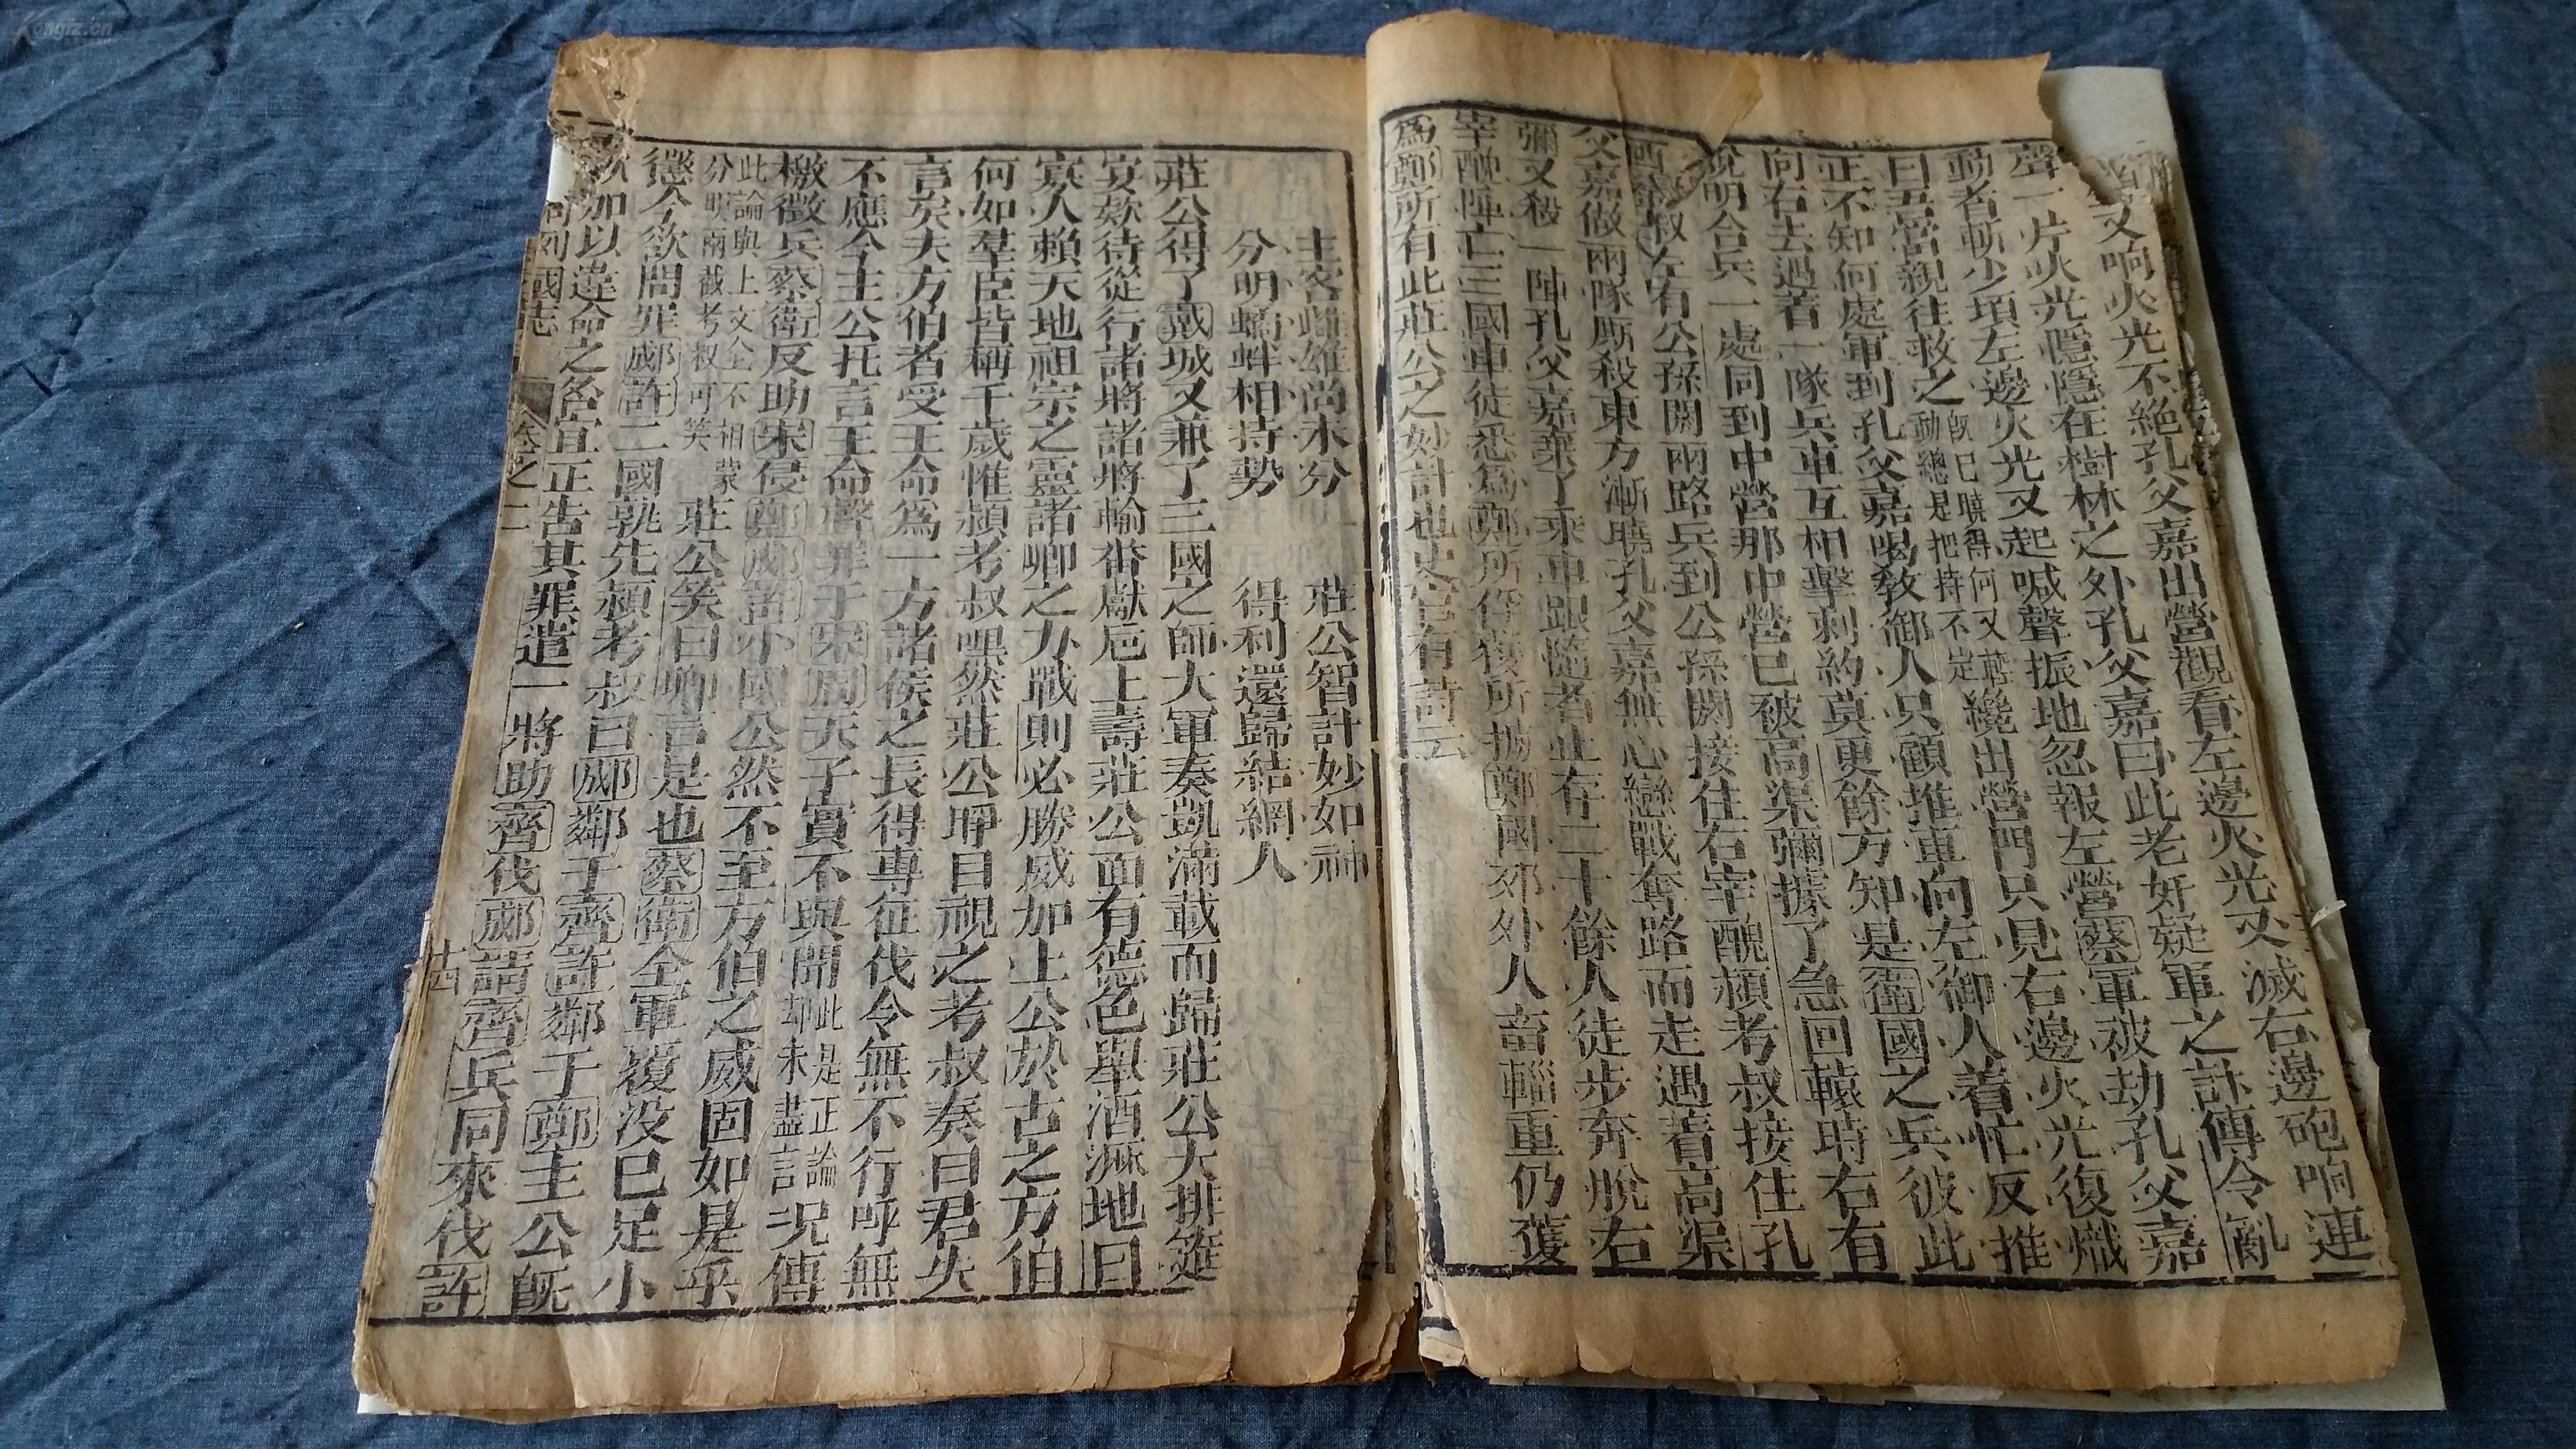 又响火光不絕孔父嘉出營觀看左邊火光又滅右邊砲响連
聲一片火光隱隱在樹林之外孔父嘉曰此老奸疑軍之計傳令亂
動者斬少頃左邊火光又起喊聲振地忽報左營蔡軍被劫孔父嘉
曰吾當親往救之
旣已曉得何又轉
動總是把持不定
纔出營門只見右邊火光復熾
正不知何處軍到孔父嘉喝教御人只顧推車向左御人着忙反推
向右去遇着一隊兵車互相擊刺約莫更餘方知是衛國之兵彼此
說明合兵一處同到中營那中營已被高渠彌據了急回轅時右有
潁考叔左有公孫閼兩路兵到公孫閼接住右宰醜潁考叔接住孔
父嘉做兩隊廝殺東方漸曉孔父嘉無心戀戰奪路而走遇着高渠
彌又殺一陣孔父嘉棄了乘車跟隨者止存二十餘人徒步奔脫右
宰醜陣亡三國車徒悉為鄭所俘獲所擄鄭國郊外人畜輜重仍舊
為鄭所有此莊公之妙計也史官有詩云
主客雌雄尚未分 莊公智計妙如神
分明鷸蚌相持勢 得利還歸結網人
莊公得了戴城又兼了三國之師大軍奏凱滿載而歸莊公大排筵
宴欵待從行諸將諸將輪番獻卮上壽莊公面有德色舉酒瀝地曰
寡人賴天地祖宗之靈諸卿之力戰則必勝威加上公於古之方伯
何如羣臣皆稱千歲惟潁考叔嘿然莊公睜目視之考叔奏曰君失
言矣夫方伯者受王命為一方諸侯之長得專征伐令無不行呼無
不應今主公托言王命聲罪于宋周天子實不與聞
此是正論
却未盡言
况傳
檄徵兵蔡衛反助宋侵鄭郕許小國公然不至方伯之威固如是乎
此論與上文全不相蒙
分明兩截考叔可笑
莊公笑曰卿言是也蔡衛全軍覆没已足小
懲今欲問罪郕許二國孰先潁考叔曰郕鄰于齊許鄰于鄭主公旣
欲加以違命之名宜正告其罪遣一將助齊伐郕請齊兵同來伐許
列國志
卷之二
十四